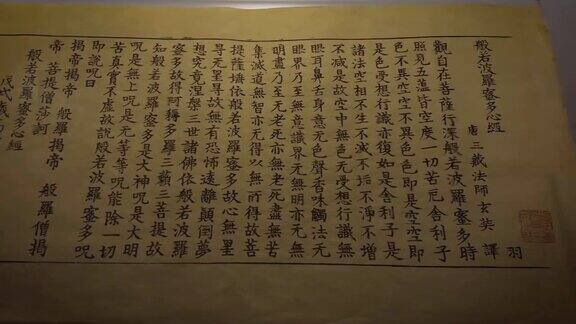 般若波羅蜜多心經
唐三藏法師玄奘譯
羽
觀自在菩薩行深般若波羅蜜多時
照見五蘊皆空度一切苦厄舍利子
色不異空空不異色色即是空空即
是色受想行識亦復如是舍利子是
諸法空相不生不滅不垢不淨不增
不減是故空中無色无受想行識無
眼耳鼻舌身意无色聲香味觸法无
眼界乃至无意識界无無明亦无無
明盡乃至无老死亦無老死盡無苦
集滅道無智亦无得以無所得故菩
提薩埵依般若波羅蜜多故心無罣
㝵无罣㝵故無有恐怖遠離顛倒夢
想究竟涅槃三世諸佛依般若波羅
蜜多故得阿耨多羅三藐三菩提故
知般若波羅蜜多是大神呪是大明
呪是無上呪是无等等呪能除一切
苦真實不虛故說般若波羅蜜多呪
即說呪曰
揭帝揭帝 般羅揭帝 般羅僧揭
帝 菩提僧莎訶
般若波羅蜜多心經
戊戌歲